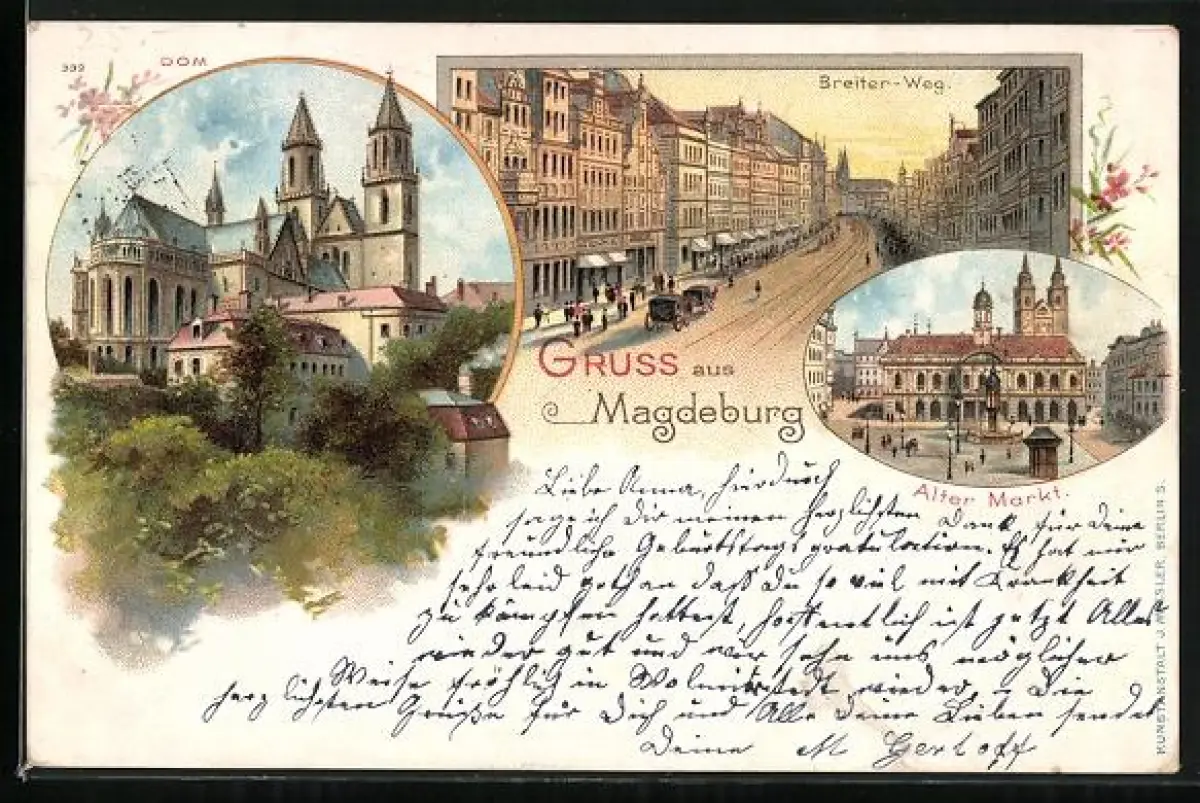 392
DOM
Breiter-Weg.
GRUSS aus
Magdeburg
Alter Markt.
Liebe Anna, hierdurch
sage ich dir meinen herzlichsten Dank für Deine
freundliche Geburtstagsgratulation. Es hat mir
sehr leid gethan daß Du so viel mit Krankheit
zu kämpfen hattest, hoffentlich ist jetzt Alles
wieder gut und wir sehn uns möglicher
Weise fröhlich in Wolmirstedt wieder. Die
herzlichsten Grüße für Dich und Alle Deine Lieben sendet
Deine M Gerloff
KUNSTANSTALT J. MIESLER, BERLIN S.